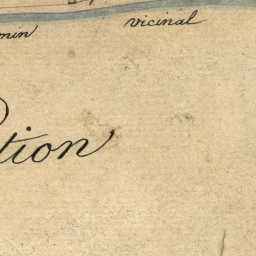 min vicinal
tion